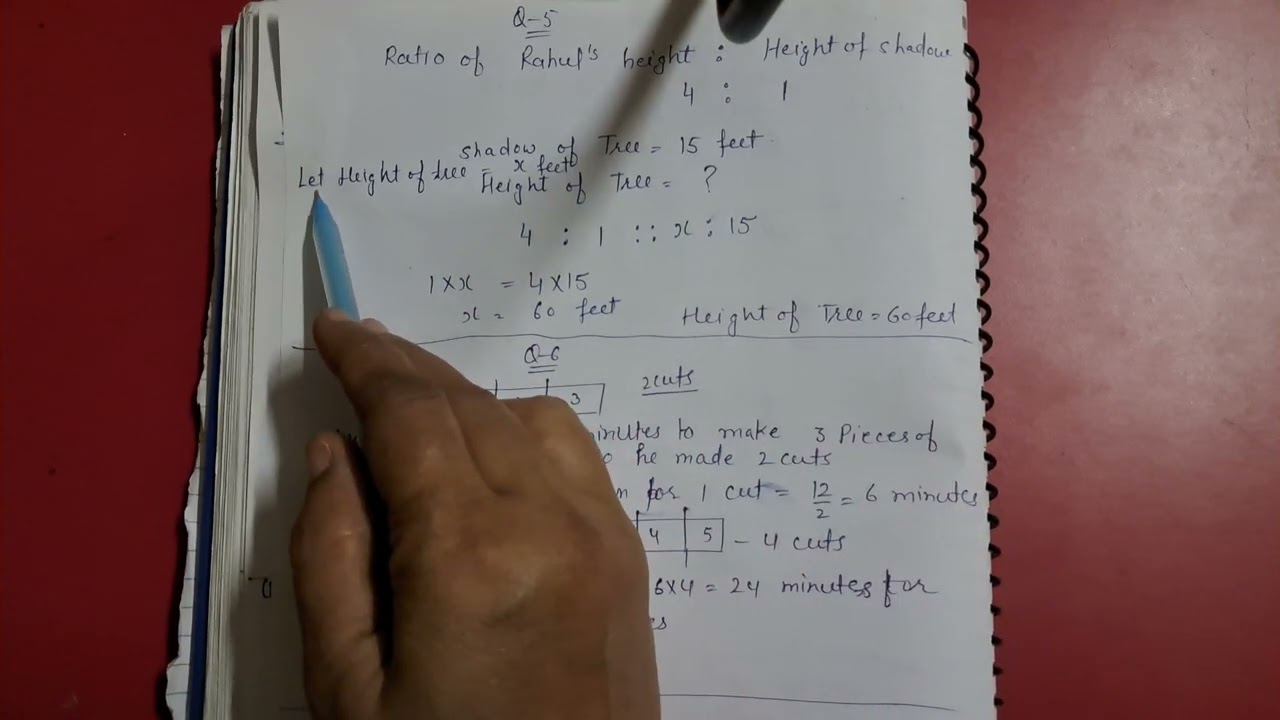 Q-5
Ratio of Rahul's height : Height of shadow
4 : 1
shadow of Tree = 15 feet
Let Height of tree = x feet
Height of Tree = ?
4 : 1 :: x : 15
1 × x = 4 × 15
x = 60 feet Height of Tree = 60 feet
Q-6
3 2 cuts
minutes to make 3 Pieces of
he made 2 cuts
for 1 cut = 12/2 = 6 minutes
4 5 - 4 cuts
6×4 = 24 minutes for